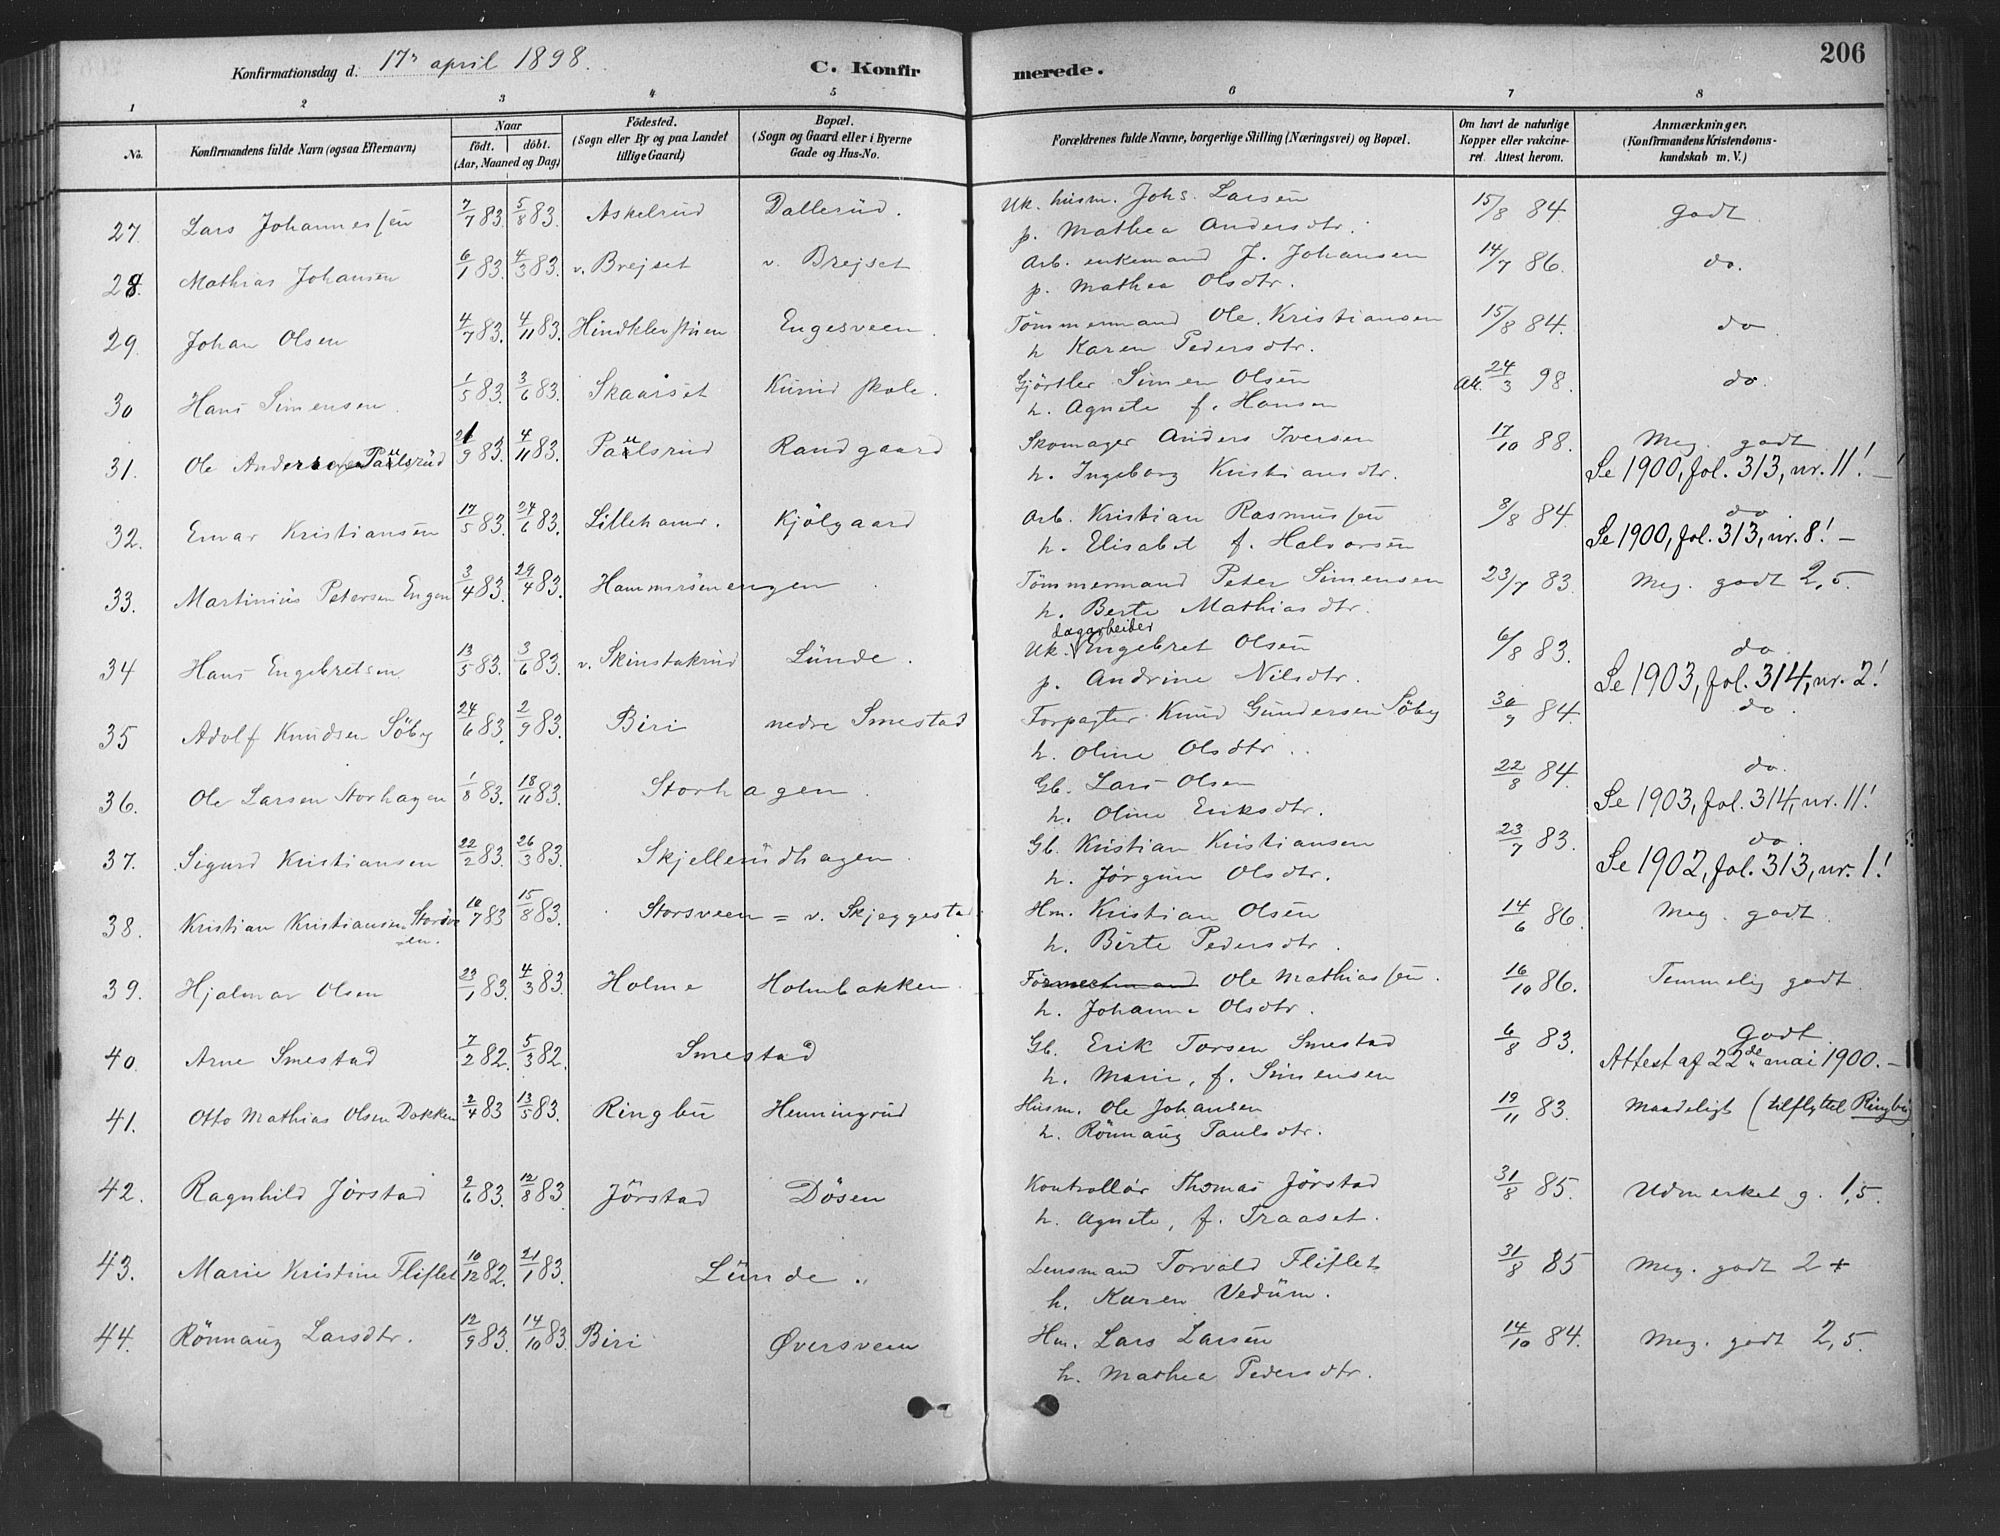 206
Konfirmationsdag d. 17de april 1898. C. Konfirmerede.
1 2 3 4 5 6 7 8
No. Konfirmandens fulde Navn (ogsaa Efternavn) Naar født. døbt. (Aar, Maaned og Dag) Födested. (Sogn eller By og paa Landet tillige Gaard) Bopæl. (Sogn og Gaard eller i Byerne Gade og Hus-No. Forældrenes fulde Navne, borgerlige Stilling (Næringsvei) og Bopæl. Om havt de naturlige Kopper eller vakcineret. Attest herom. Anmærkninger. (Konfirmandens Kristendomskundskab m. V.)
27. Lars Johannessen 7/7 83. 5/8 83. Askelrud Dallerud. Uk. husm. Johs. Larsen 15/8 84 Godt
p. Mathea Andersdtr.
28. Mathias Johansen 6/1 83. 4/3 83. v. Brejset v. Brejset Arb. enkemand J. Johansen 14/7 86. do.
p. Mathea Olsdtr.
29. Johan Olsen 4/7 83. 4/11 83. Hindklevstuen Engesveen. Tömmermand Ole Kristiansen 15/8 84. do
h Karen Pedersdtr.
30 Hans Simensen. 1/5 83. 3/6 83. Skaarset Kurud skole. Gjörtler Simen Olsen Att. 24/3 98. do.
h. Agnete f. Hansen
31. Ole Andersen Paulsrud 21/9 83. 4/11 83. Paulsrud Randgaard Skomager Anders Iversen 17/10 88. Meg. godt
h. Ingeborg Kristiansdtr. Se 1900, fol. 313, nr. 11! -
32. Einar Kristiansen 17/5 83. 24/6 83. Lillehamr. Kjölgaard Arb. Kristian Rasmussen 8/8 84 do
h. Elisabet f. Halvorsen Se 1900, fol. 313, nr. 8! -
33. Martinius Petersen Engen 3/4 83. 29/4 83. Hammersönengen. Tömmermand Peter Simensen 23/7 83. Meg. godt 2,5.
h. Berte Mathiasdtr.
34 Hans Engebretsen 13/5 83. 3/6 83. v. Skinstakrud Lunde. Uk. dagarbeider Engebret Olsen 6/8 83. do
p. Andrine Nilsdtr. Se 1903, fol. 314, nr. 2!
35 Adolf Knudsen Söby 24/6 83. 2/9 83. Biri nedre Smestad Forpagter Knud Gundersen Söby 30/9 84. do.
h. Oline Olsdtr.
36. Ole Larsen Storhagen 1/8 83. 18/11 83. Storhagen. Gb. Lars Olsen 22/8 84. do.
h. Oline Eriksdtr. Se 1903, fol. 314, nr. 11!
37. Sigurd Kristiansen 22/2 83. 26/3 83. Skjellerudhagen Gb. Kristian Kristiansen 23/7 83. do.
h. Jörgine Olsdtr. Se 1902, fol. 313, nr. 1!
38. Kristian Kristiansen Storsveen. 10/7 83 15/8 83. Storsveen = v. Skjeggestad Hm. Kristian Olsen 14/6 86. Meg. godt.
h. Birte Pedersdtr.
39. Hjalmar Olsen 23/1 83. 4/3 83. Holme Holmbakken. Ole Mathiassen. 16/10 86. Temmelig godt
h. Johanne Olsdtr.
40. Arne Smestad 7/2 82. 5/3 82. Smestad Gb. Erik Torsen Smestad 6/8 83. Godt
h. Marie, f. Simensen Attest af 22de mai 1900. -
41. Otto Mathias Olsen Dokken 2/4 83 13/5 83. Ringbu Henningrud Husm. Ole Johansen 19/11 83. Maadeligt (tilflyttet Ringbu)
h. Rönnaug Paulsdtr.
42. Ragnhild Jörstad 2/6 83. 12/8 83. Jörstad Dösen Kontrollör Thomas Jörstad 31/8 85. Udmerket g. 1,5.
h. Agnete, f. Traaset.
43. Marie Kristine Fliflet 10/12 82. 21/1 83. Lunde. Lensmand Torvald Fliflet 31/8 85 Meg. godt 2 +
h. Karen Vedum.
44. Rönnaug Larsdtr. 12/9 83. 14/10 83. Biri Øversveen Hm. Lars Larsen 14/10 84. Meg. godt 2,5.
h. Mathea Pedersdtr.